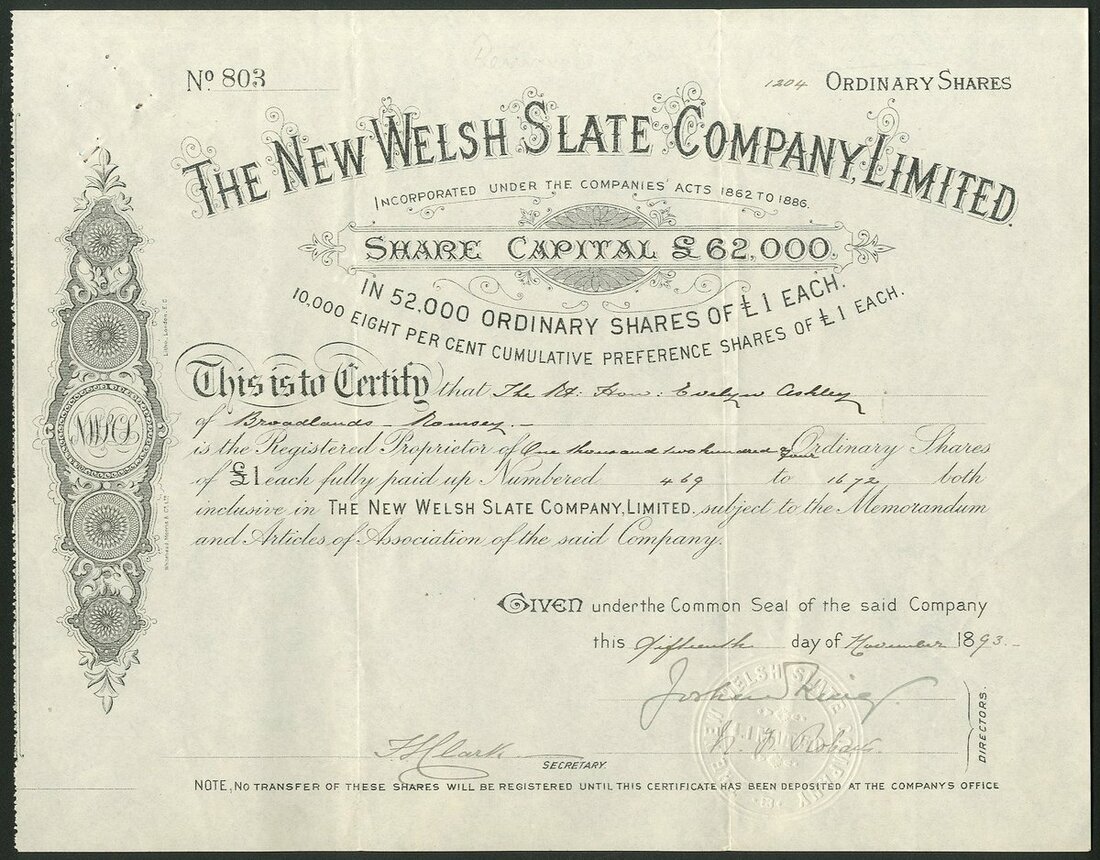 Nº 803
1204 ORDINARY SHARES
THE NEW WELSH SLATE COMPANY, LIMITED.
INCORPORATED UNDER THE COMPANIES' ACTS 1862 TO 1886.
SHARE CAPITAL £62,000.
IN 52,000 ORDINARY SHARES OF £1 EACH.
10,000 EIGHT PER CENT CUMULATIVE PREFERENCE SHARES OF £1 EACH.
This is to Certify that The Rt: Hon: Evelyn Ashley
of Broadlands Romsey.
is the Registered Proprietor of One thousand two hundred & four Ordinary Shares
of £1 each fully paid up Numbered 469 to 1672 both
inclusive in THE NEW WELSH SLATE COMPANY, LIMITED. subject to the Memorandum
and Articles of Association of the said Company.
GIVEN under the Common Seal of the said Company
this fifteenth day of November 1893.
DIRECTORS.
Clark
SECRETARY.
NOTE, NO TRANSFER OF THESE SHARES WILL BE REGISTERED UNTIL THIS CERTIFICATE HAS BEEN DEPOSITED AT THE COMPANYS OFFICE